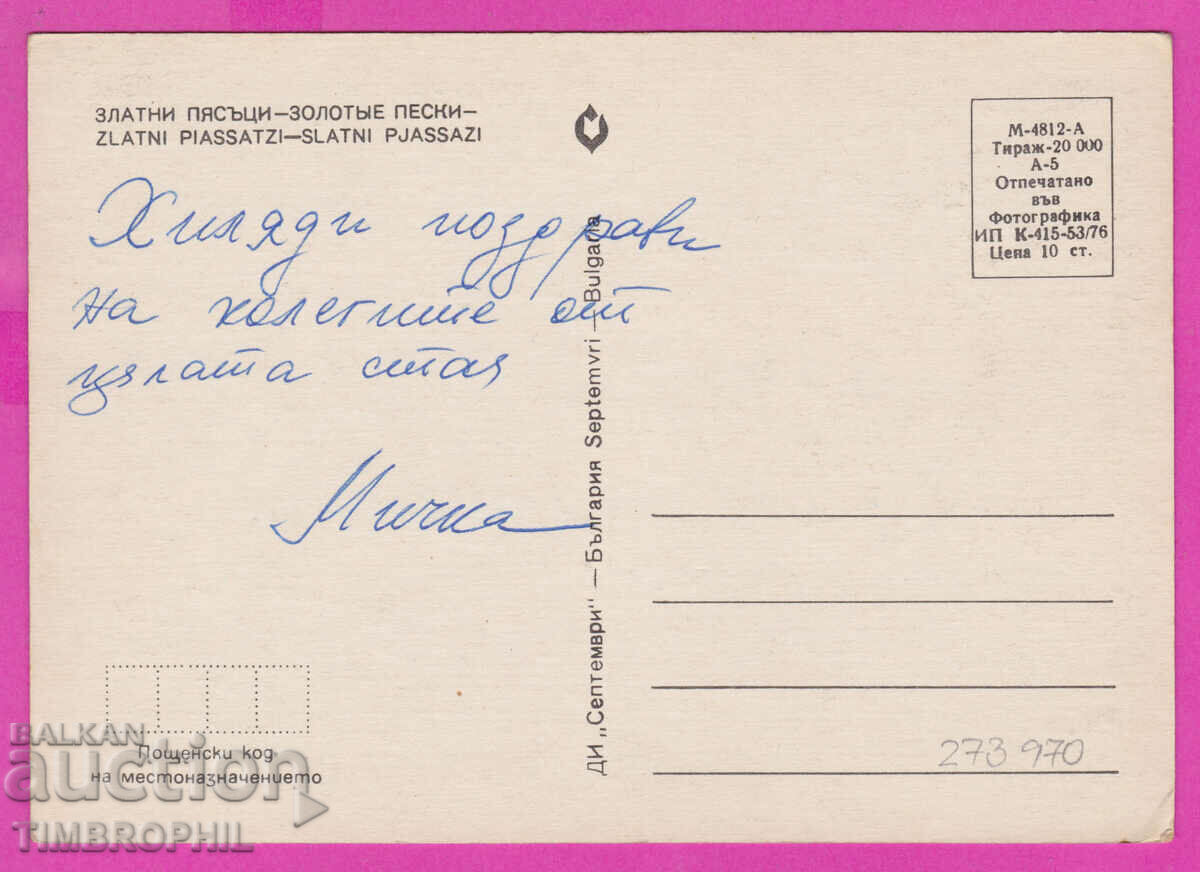 ЗЛАТНИ ПЯСЪЦИ—ЗОЛОТЫЕ ПЕСКИ—
ZLATNI PIASSATZI—SLATNI PJASSAZI
Хиляди поздрави
на колегите от
цялата стая
Мичка
Пощенски код
на местоназначението
ДИ „Септември" — България Septemvri — Bulgaria
М-4812-А
Тираж-20 000
А-5
Отпечатано
във
Фотографика
ИП К-415-53/76
Цена 10 ст.
273 970
BALKAN
auction
TIMBROPHIL